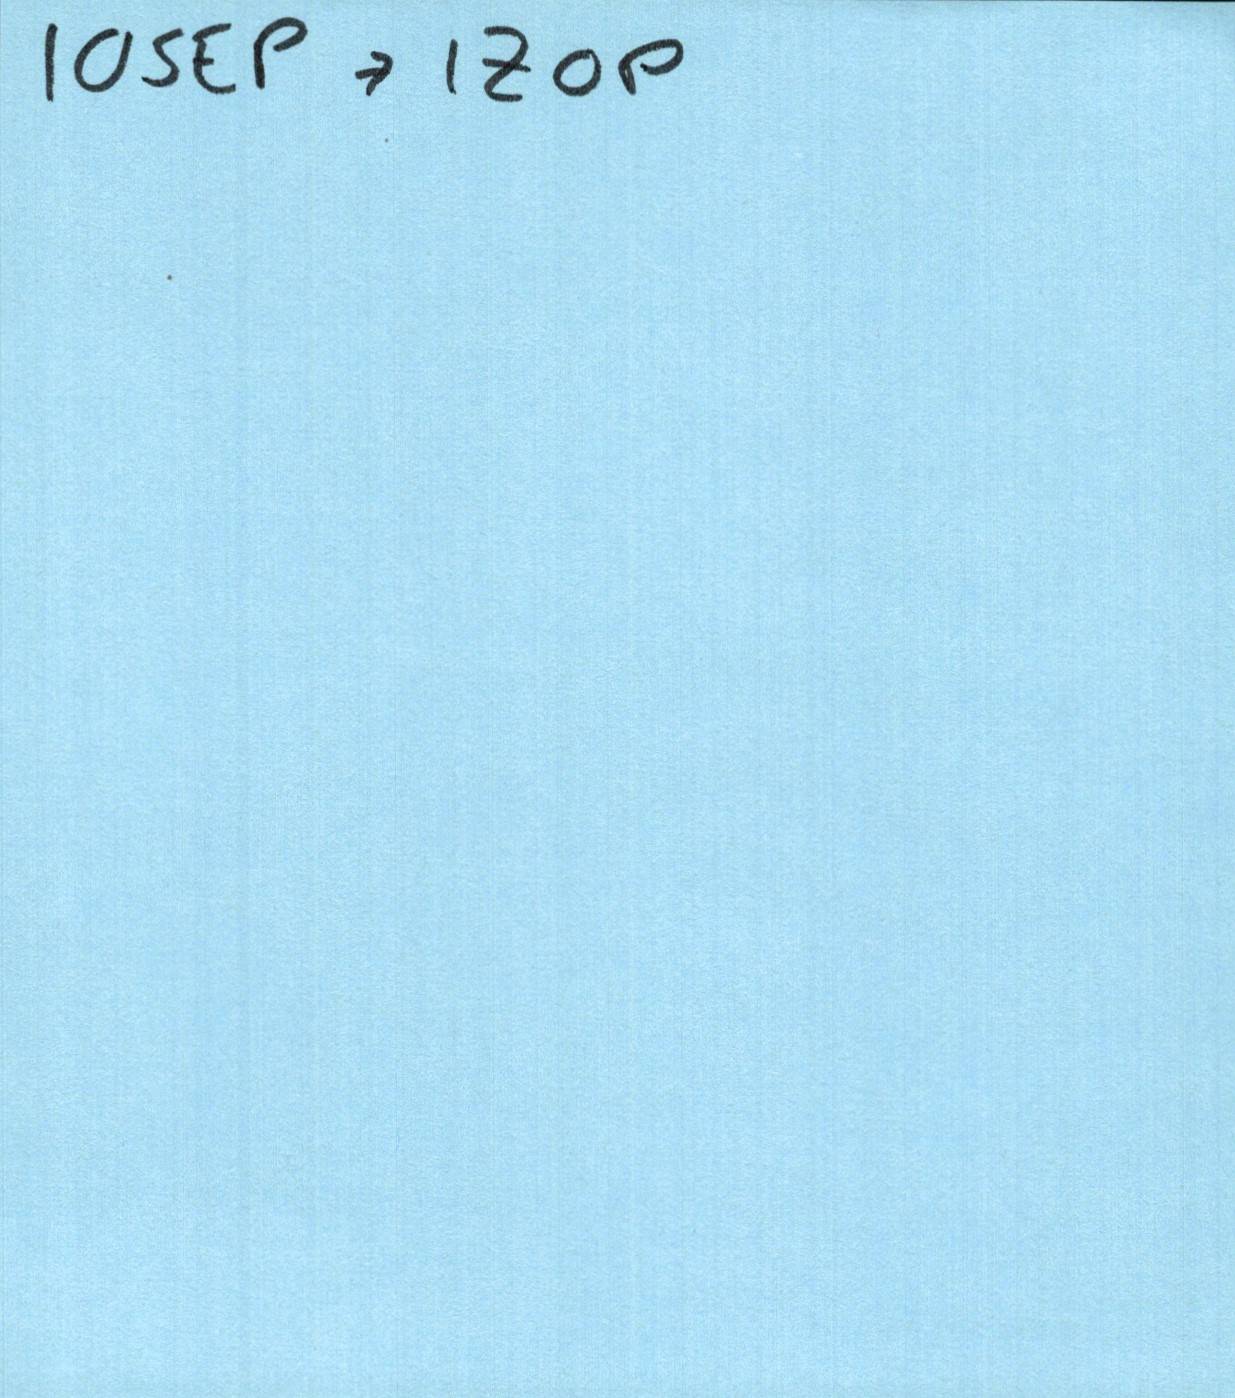 IOSEP → IZOP